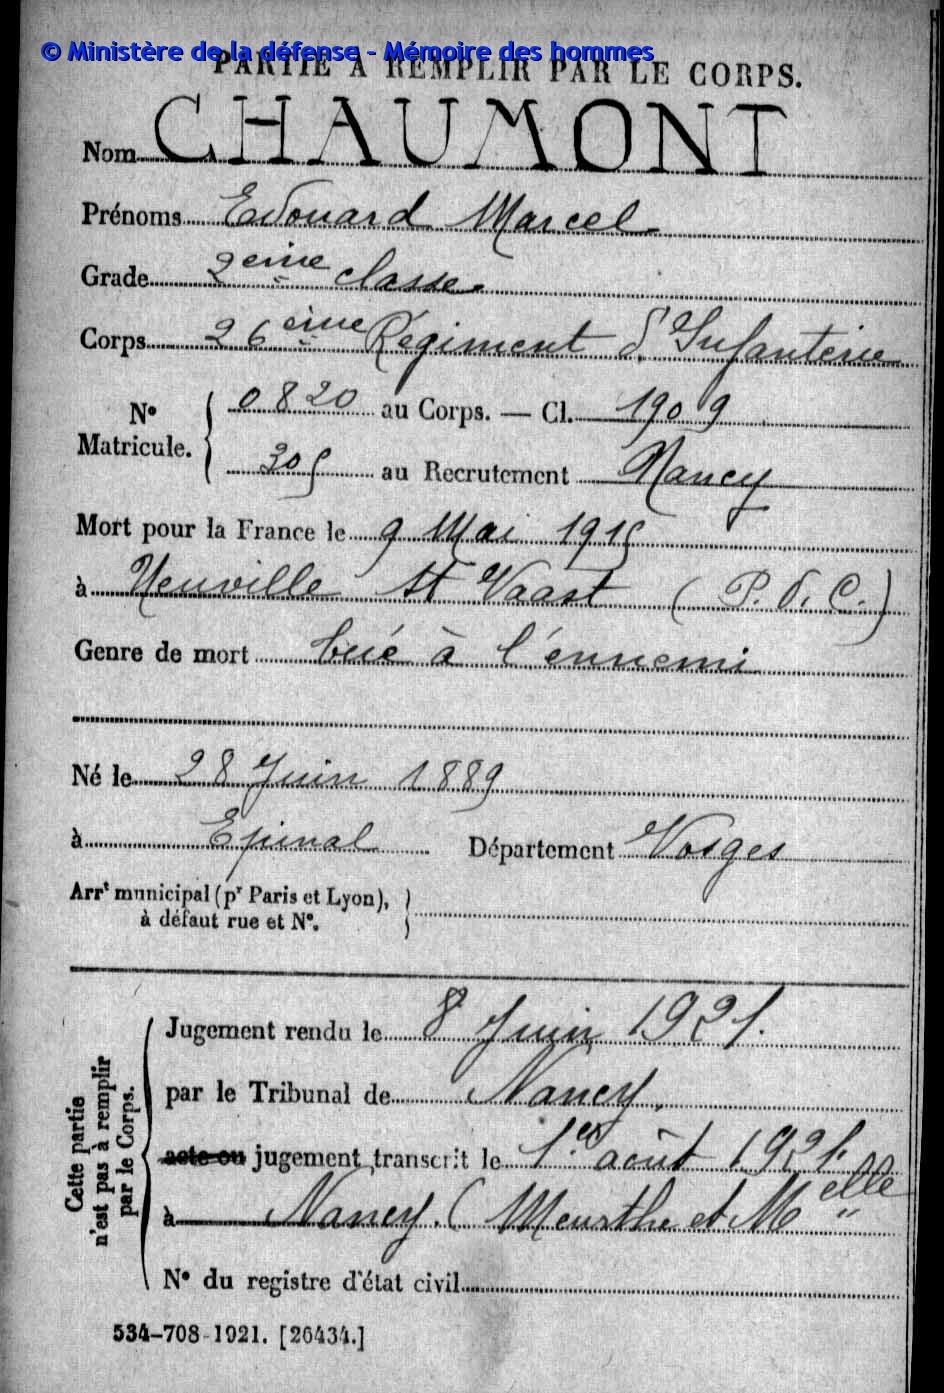 © Ministère de la défense - Mémoire des hommes
PARTIE À REMPLIR PAR LE CORPS.
Nom CHAUMONT
Prénoms Edouard Marcel
Grade 2ème classe.
Corps 26ème Régiment d'Infanterie
N° Matricule. { 0820 au Corps. — Cl. 1909
305 au Recrutement Nancy
Mort pour la France le 9 Mai 1915
à Neuville St Vaast (P. d. C.)
Genre de mort tué à l'ennemi
Né le 28 Juin 1889
à Epinal Département Vosges
Arrt municipal (pr Paris et Lyon), à défaut rue et N°.
Cette partie n'est pas à remplir par le Corps.
Jugement rendu le 8 Juin 1921.
par le Tribunal de Nancy.
acte ou jugement transcrit le 1er août 1921.
à Nancy. (Meurthe et Melle
N° du registre d'état civil
534-708-1921. [26434.]